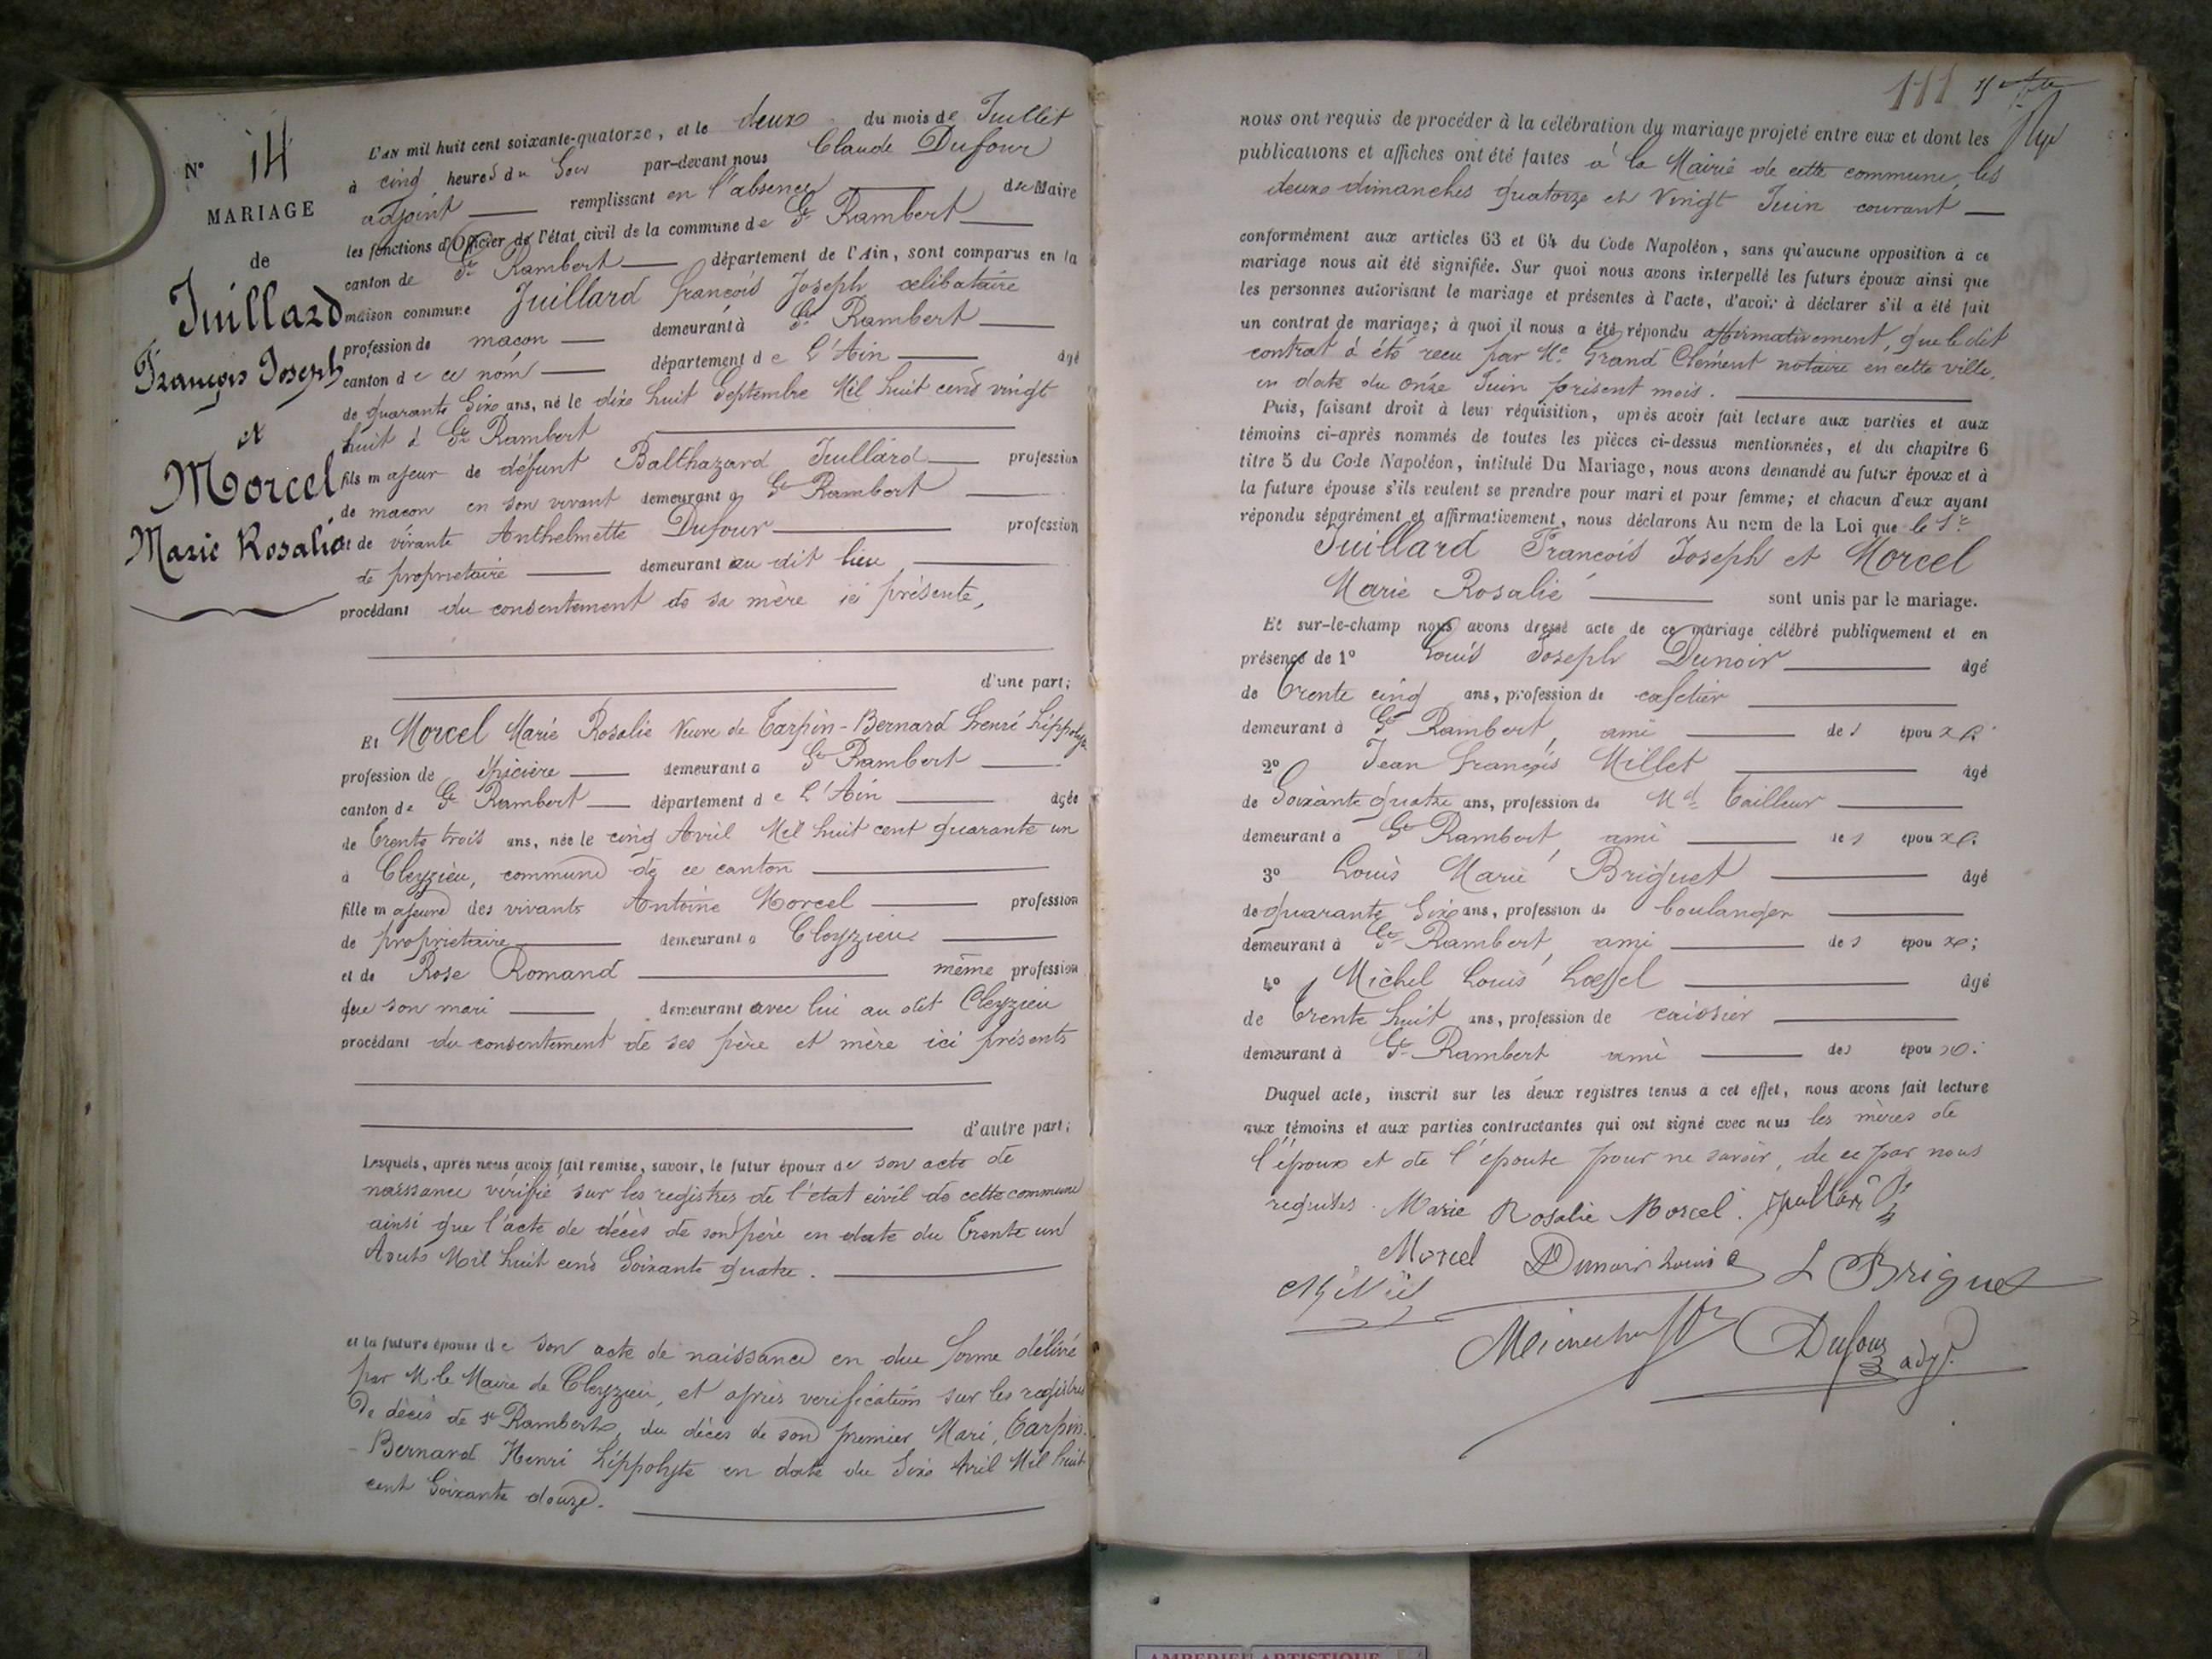 N° 14
MARIAGE
de
Juillard
François Joseph
et
Morcel
Marie Rosalie
L'AN mil huit cent soixante-quatorze, et le deux du mois de Juillet
à cinq heures du Soir par-devant nous Claude Dufour
adjoint remplissant en l'absence du Maire
les fonctions d'Officier de l'état civil de la commune de St Rambert
canton de St Rambert département de l'Ain, sont comparus en la
maison commune Juillard françois Joseph celibataire
profession de maçon demeurant à St Rambert
canton de ce nom département de L'Ain âgé
de quarante Six ans, né le dix huit Septembre Mil huit cent vingt
huit à St Rambert
fils majeur de défunt Balthazard Juillard profession
de maçon en son vivant demeurant à St Rambert
et de vivante Anthelmette Dufour profession
de propriétaire demeurant au dit lieu
procédant du consentement de sa mère ici présente,
d'une part;
Et Morcel Marie Rosalie Veuve de Tarpin-Bernard henri hippolyte
profession de épicière demeurant à St Rambert
canton de St Rambert département de L'Ain âgée
de Trente trois ans, née le cinq Avril Mil huit cent quarante un
à Cleyzieu, commune de ce canton
fille majeure des vivants Antoine Morcel profession
de propriétaire demeurant à Cleyzieu
et de Rose Romand même profession
que son mari demeurant avec lui au dit Cleyzieu
procédant du consentement de ses père et mère ici présents
d'autre part;
Lesquels, après nous avoir fait remise, savoir, le futur époux de son acte de
naissance vérifié sur les registres de l'état civil de cette commune
ainsi que l'acte de décès de son père en date du Trente un
Aout Mil huit cent Soixante quatre.
et la future épouse de son acte de naissance en due forme délivré
par M. le Maire de Cleyzieu, et après verification sur les registres
De décès de St Rambert, du décès de son premier Mari, Tarpin-
-Bernard Henri hippolyte en date du Six Avril Mil huit
cent Soixante douze.
111
nous ont requis de procéder à la célébration du mariage projeté entre eux et dont les
publications et affiches ont été faites à la Mairie de cette commune, les
deux dimanches quatorze et Vingt Juin courant
conformément aux articles 63 et 64 du Code Napoléon, sans qu'aucune opposition à ce
mariage nous ait été signifiée. Sur quoi nous avons interpellé les futurs époux ainsi que
les personnes autorisant le mariage et présentes à l'acte, d'avoir à déclarer s'il a été fait
un contrat de mariage; à quoi il nous a été répondu affirmativement, que le dit
contrat à été recu par Me Grand Clément notaire en cette ville,
en date du onze Juin présent mois.
Puis, faisant droit à leur réquisition, après avoir fait lecture aux parties et aux
témoins ci-après nommés de toutes les pièces ci-dessus mentionnées, et du chapitre 6
titre 5 du Code Napoléon, intitulé Du Mariage, nous avons demandé au futur époux et à
la future épouse s'ils veulent se prendre pour mari et pour femme; et chacun d'eux ayant
répondu séparément et affirmativement, nous déclarons Au nom de la Loi que le Sr
Juillard François Joseph et Morcel
Marie Rosalie sont unis par le mariage.
Et sur-le-champ nous avons dressé acte de ce mariage célébré publiquement et en
présence de 1° Louis Joseph Dunoir âgé
de Trente cinq ans, profession de cafetier
demeurant à St Rambert, ami des époux.
2° Jean françois Millet âgé
de Soixante quatre ans, profession de Md Tailleur
demeurant à St Rambert, ami des époux.
3° Louis Marie Briquet âgé
de quarante Six ans, profession de boulanger
demeurant à St Rambert, ami des époux;
4° Michel Louis Lœffel âgé
de Trente huit ans, profession de caissier
demeurant à St Rambert ami des époux.
Duquel acte, inscrit sur les deux registres tenus à cet effet, nous avons fait lecture
aux témoins et aux parties contractantes qui ont signé avec nous les mères de
l'époux et de l'épouse pour ne savoir, de ce par nous
requises. Marie Rosalie Morcel. Juillard
Morcel Dunoir Louis L Briquet
Dufour adjt.
AMBERIEU ARTISTIQUE